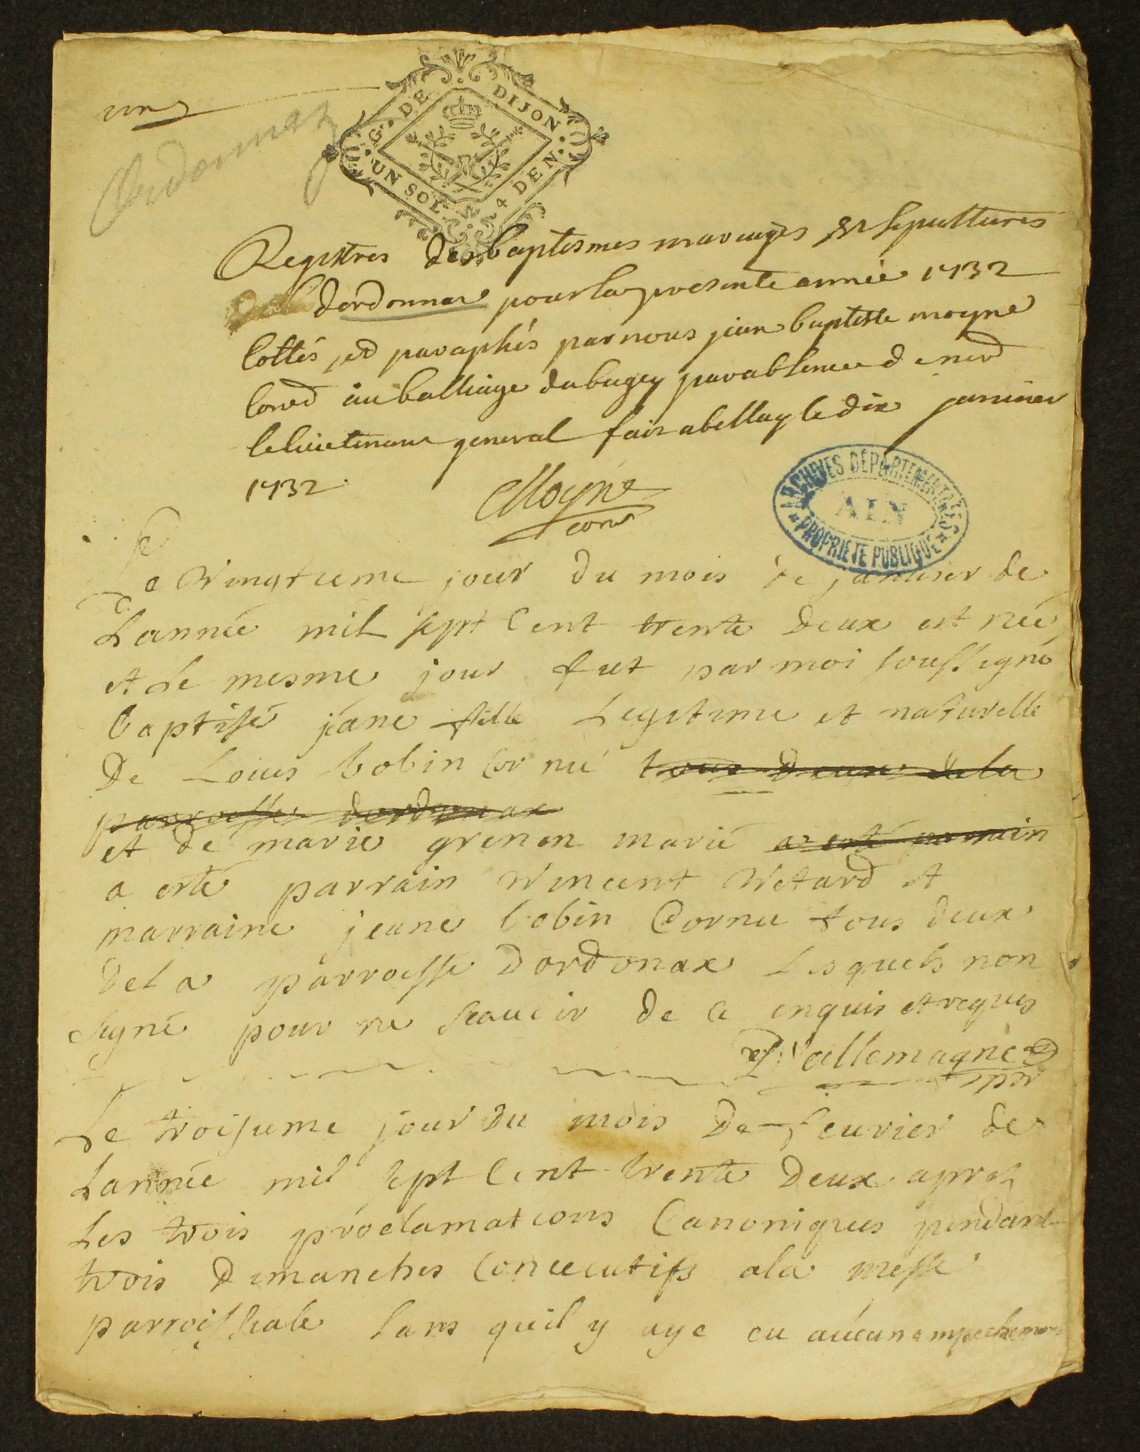 un
Ordonnaz
G. DE DIJON
UN SOL 4 DEN.
Registres des baptesmes mariages et sepultures
dordonnas pour la presente année 1732
cottés et paraphés par nous jean baptiste moyne
conser au balliage du bugey par absence de
le lieutenant general fait a bellay le dix janvier
1732.
Moyne
cons
ARCHIVES DÉPARTEMENTALES
AIN
PROPRIÉTÉ PUBLIQUE
Le vingtieme jour du mois de janvier de
Lannée mil sept cent trente deux est née
et le mesme jour fut par moi soussigné
baptisé jane fille Legitime et naturelle
De Louis bobin Cornu tous deux de la
parroisse dordonax
et de marie grenon marié a esté parrain
a esté parrain vincent vetard et
marraine jeane bobin Cornu tous deux
de la parroisse Dordonax Lesquels non
signé pour ne scavoir de ce enquis et requis
Vallemagne
Le troisieme jour Du mois De fevrier de
Lannée mil sept Cent trente Deux apres
Les trois proclamations Canoniques pendant
trois Dimanches Consecutifs a la messe
parroissiale sans queil y aye eu aucun empechement